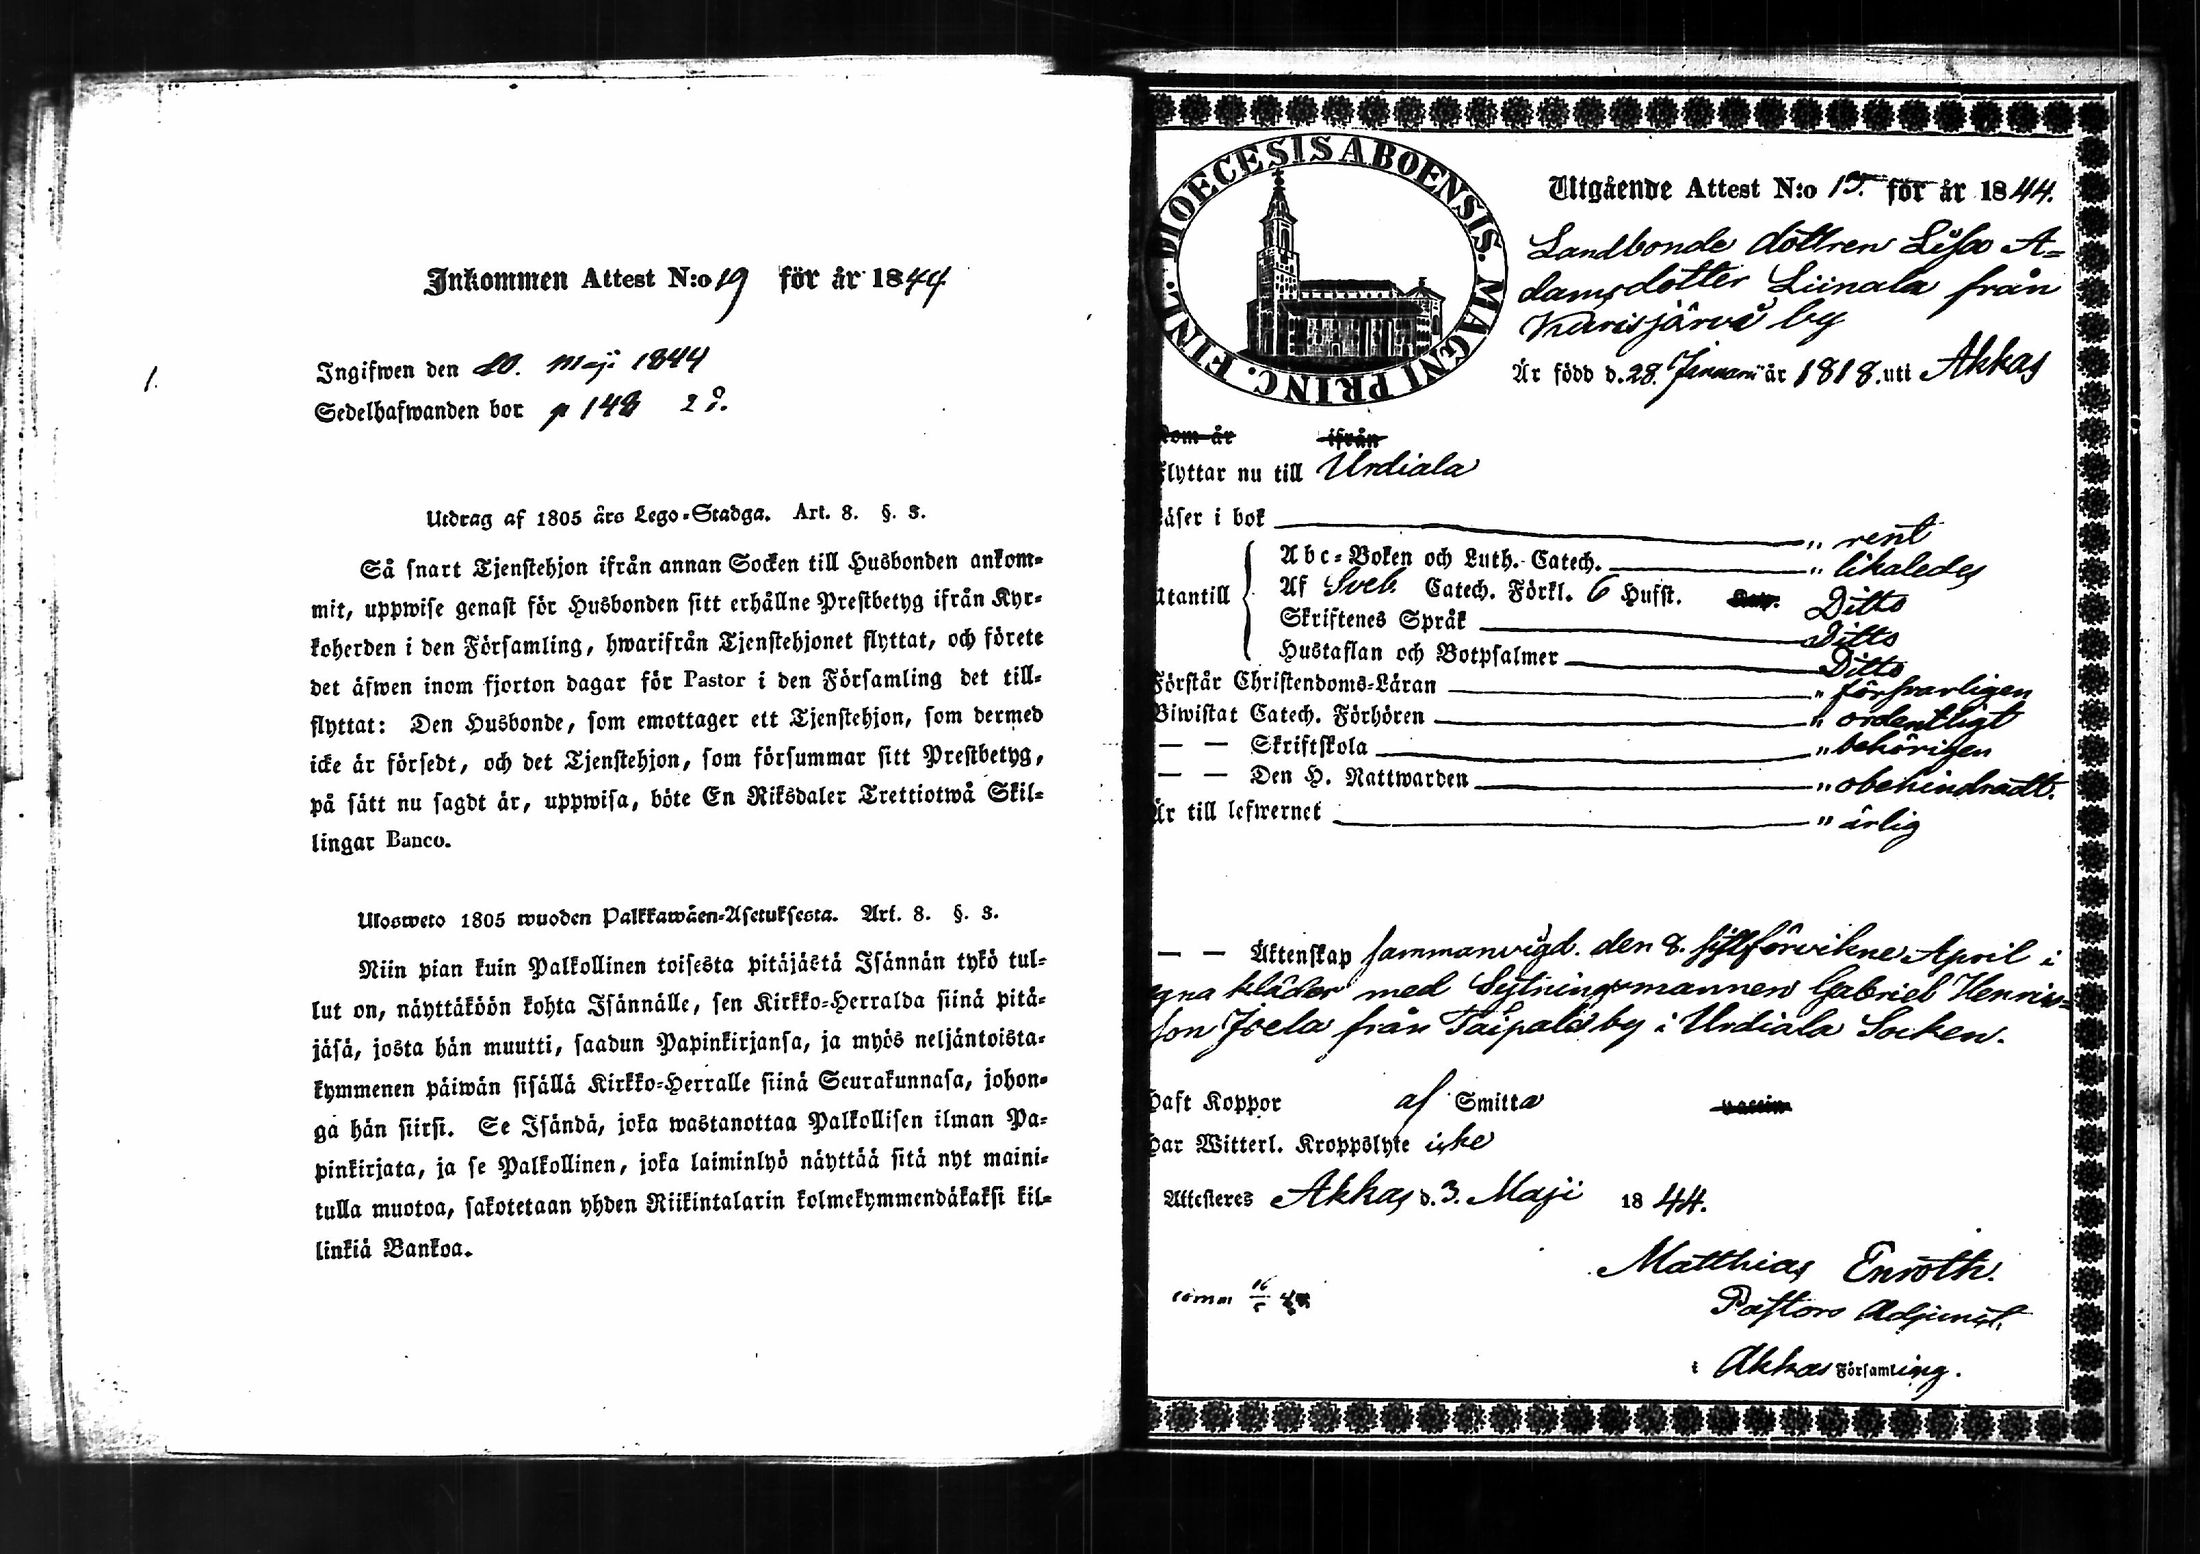 Inkommen Attest N:o 19 för år 1844
1.
Ingifwen den 20. Maji 1844
Sedelhafwanden bor p 148
Utdrag af 1805 års Lego-Stadga. Art. 8. §. 3.
Så snart Tjenstehjon ifrån annan Socken till Husbonden ankom-
mit, uppwise genast för Husbonden sitt erhållne Prestbetyg ifrån Kyr-
koherden i den Församling, hwarifrån Tjenstehjonet flyttat, och förete
det äfwen inom fjorton dagar för Pastor i den Församling det till-
flyttat: Den Husbonde, som emottager ett Tjenstehjon, som dermed
icke är försedt, och det Tjenstehjon, som försummar sitt Prestbetyg,
på sätt nu sagdt är, uppwisa, böte En Riksdaler Trettiotwå Skil-
lingar Banco.
Ulosweto 1805 wuoden Palkkawäen-Asetuksesta. Art. 8. §. 3.
Niin pian kuin Palkollinen toisesta pitäjästä Isännän tykö tul-
lut on, näyttäköön kohta Isännälle, sen Kirkko-Herralda siinä pitä-
jäsä, josta hän muutti, saadun Papinkirjansa, ja myös neljäntoista-
kymmenen päiwän sisällä Kirkko-Herralle siinä Seurakunnasa, johon-
ga hän siirsi. Se Isändä, joka wastanottaa Palkollisen ilman Pa-
pinkirjata, ja se Palkollinen, joka laiminlyö näyttää sitä nyt maini-
tulla muotoa, sakotetaan yhden Riikintalarin kolmekymmendäkaksi kil-
linkiä Bankoa.
DIOECESIS ABOENSIS. MAGNI PRINC. FINL.
Utgående Attest N:o 15. för år 1844.
Landbonde dottren Lisa A-
damsdotter Liinala från
Kurisjärvi by
Är född d. 28. Januarii år 1818. uti Akkas
kom år ifrån
flyttar nu till Urdiala
Läser i bok " rent
Utantill
Abc-Boken och Luth. Catech. " likaledes
Af Sveb. Catech. Förkl. 6 Hufst. Ditto
Skriftenes Språk Ditto
Hustaflan och Botpsalmer Ditto
Förstår Christendoms-Läran " försvarligen
Biwistat Catech. Förhören " ordentligt
— — Skriftskola " behörigen
— — Den H. Nattwarden " obehindradt.
Är till lefwernet " ärlig
— — Äktenskap sammanvigd. den 8. sistförvikne April i
egna kläder med Sytningsmannen Gabriel Henrics-
son Joela från Taipale by i Urdiala Socken.
Haft Koppor af Smitta
Har Witterl. Kroppslyte icke
Attesteres Akkas d. 3. Maji 1844.
Matthias Enroth.
Pastors Adjunct.
i Akkas Församling.
comm 16/5 44